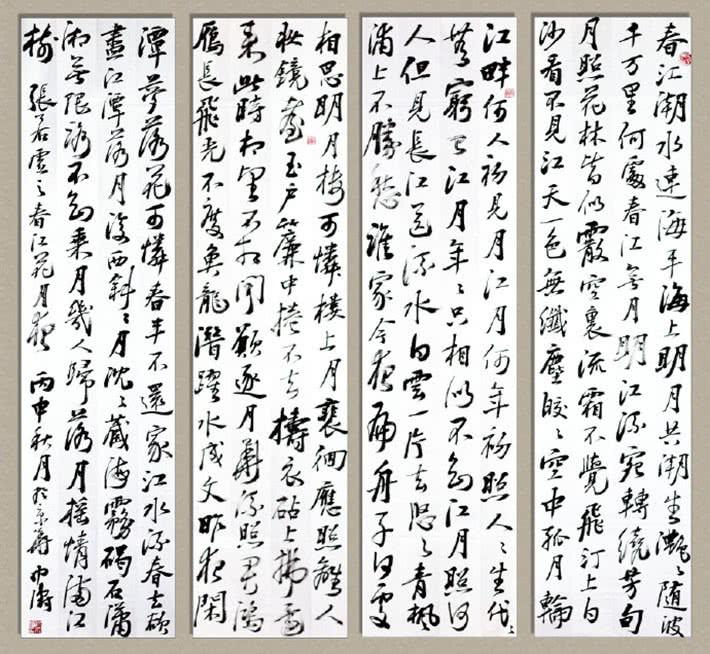 春江潮水連海平海上明月共潮生灩〻随波
千万里何處春江無月明江流宛轉繞芳甸
月照花林皆似霰空裏流霜不覺飛汀上白
沙看不見江天一色無纖塵皎〻空中孤月輪
江畔何人初見月江月何年初照人〻生代〻
無窮已江月年〻只相似不知江月照何
人但見長江送流水白雲一片去悠〻青楓
浦上不勝愁誰家今夜扁舟子何處
相思明月樓可憐樓上月裴徊應照離人
妝鏡臺玉户簾中捲不去擣衣砧上拂還
來此時相望不相聞願逐月華流照君鴻
雁長飛光不度魚龍潛躍水成文昨夜閑
潭夢落花可憐春半不還家江水流春去欲
盡江潭落月復西斜〻月沈〻藏海霧碣石瀟
湘無限路不知乘月幾人歸落月摇情滿江
樹 張若虚之春江花月夜 丙申秋月於京華